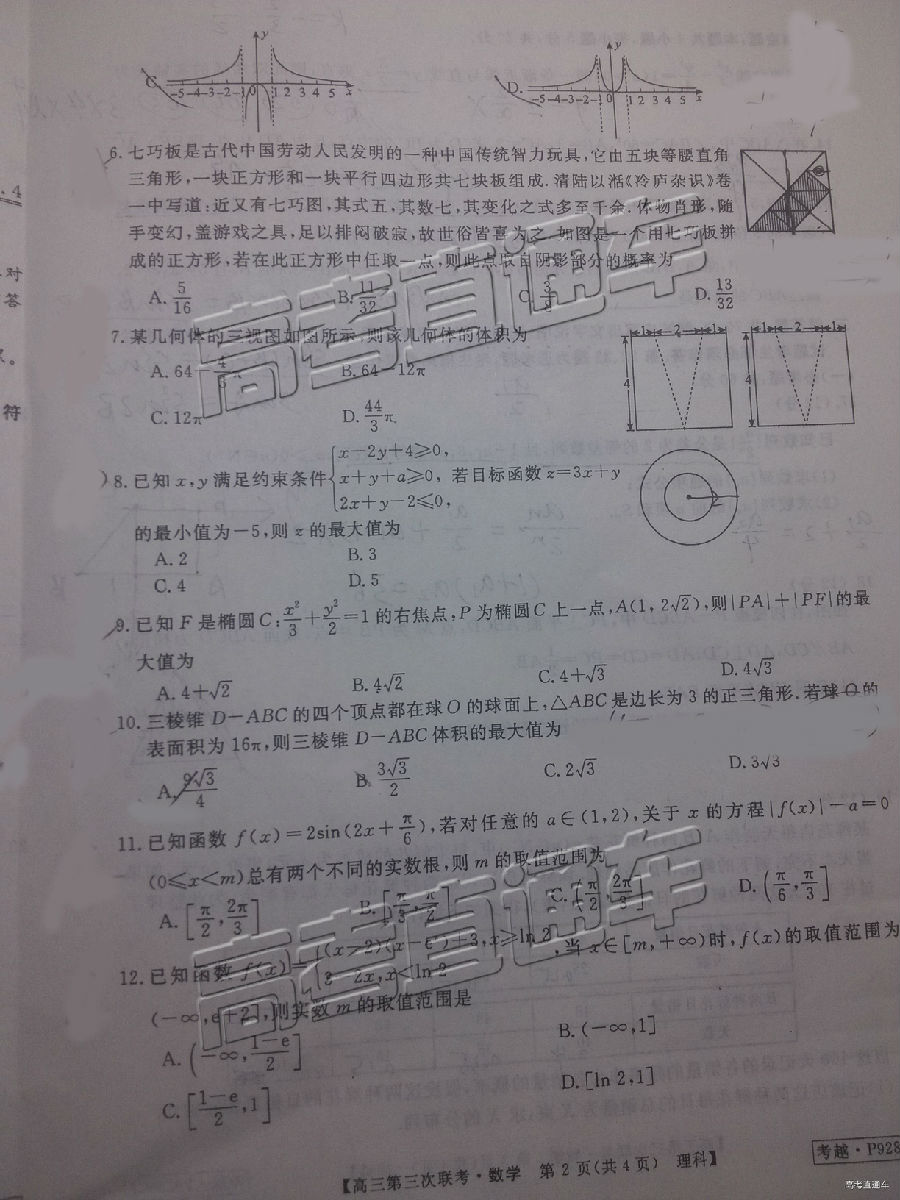 C.
-5-4-3-2-1 0 1 2 3 4 5 x
y
D.
-5-4-3-2-1 0 1 2 3 4 5 x
y
6.七巧板是古代中国劳动人民发明的一种中国传统智力玩具,它由五块等腰直角
三角形,一块正方形和一块平行四边形共七块板组成.清陆以湉《冷庐杂识》卷
一中写道:近又有七巧图,其式五,其数七,其变化之式多至千余.体物肖形,随
手变幻,盖游戏之具,足以排闷破寂,故世俗皆喜为之.如图是一个用七巧板拼
成的正方形,若在此正方形中任取一点,则此点取自阴影部分的概率为
A. 5/16 B. 11/32 C. 3/8 D. 13/32
7.某几何体的三视图如图所示,则该几何体的体积为
A. 64- π B. 64-12π
C. 12π D. 44/3 π
1 2 1
4
1 2 1
4
8.已知 x,y 满足约束条件{x-2y+4≥0, x+y+a≥0, 2x+y-2≤0, 若目标函数 z=3x+y
的最小值为-5,则 z 的最大值为
A. 2 B. 3
C. 4 D. 5
9.已知 F 是椭圆 C: x²/3+y²/2=1 的右焦点,P 为椭圆 C 上一点,A(1,2√2),则|PA|+|PF|的最
大值为
A. 4+√2 B. 4√2 C. 4+√3 D. 4√3
10.三棱锥 D-ABC 的四个顶点都在球 O 的球面上,△ABC 是边长为 3 的正三角形.若球 O 的
表面积为 16π,则三棱锥 D-ABC 体积的最大值为
A. 9√3/4 B. 3√3/2 C. 2√3 D. 3√3
11.已知函数 f(x)=2sin(2x+π/6),若对任意的 a∈(1,2),关于 x 的方程|f(x)|-a=0
(0≤x<m)总有两个不同的实数根,则 m 的取值范围为
A. [π/2,2π/3] B. [π/3,π/2] C. [π/2,2π/3] D. (π/6,π/3]
12.已知函数 f(x)= (x-2)(x-e^x)+3,x≥ln 2 -2x,x<ln 2 ,当 x∈[m,+∞)时,f(x)的取值范围为
(-∞,e+2],则实数 m 的取值范围是
A. (-∞,(1-e)/2] B. (-∞,1]
C. [(1-e)/2,1] D. [ln 2,1]
【高三第三次联考·数学 第 2 页(共 4 页) 理科】
考越·P928
高考直通车
高考直通车
高考直通车